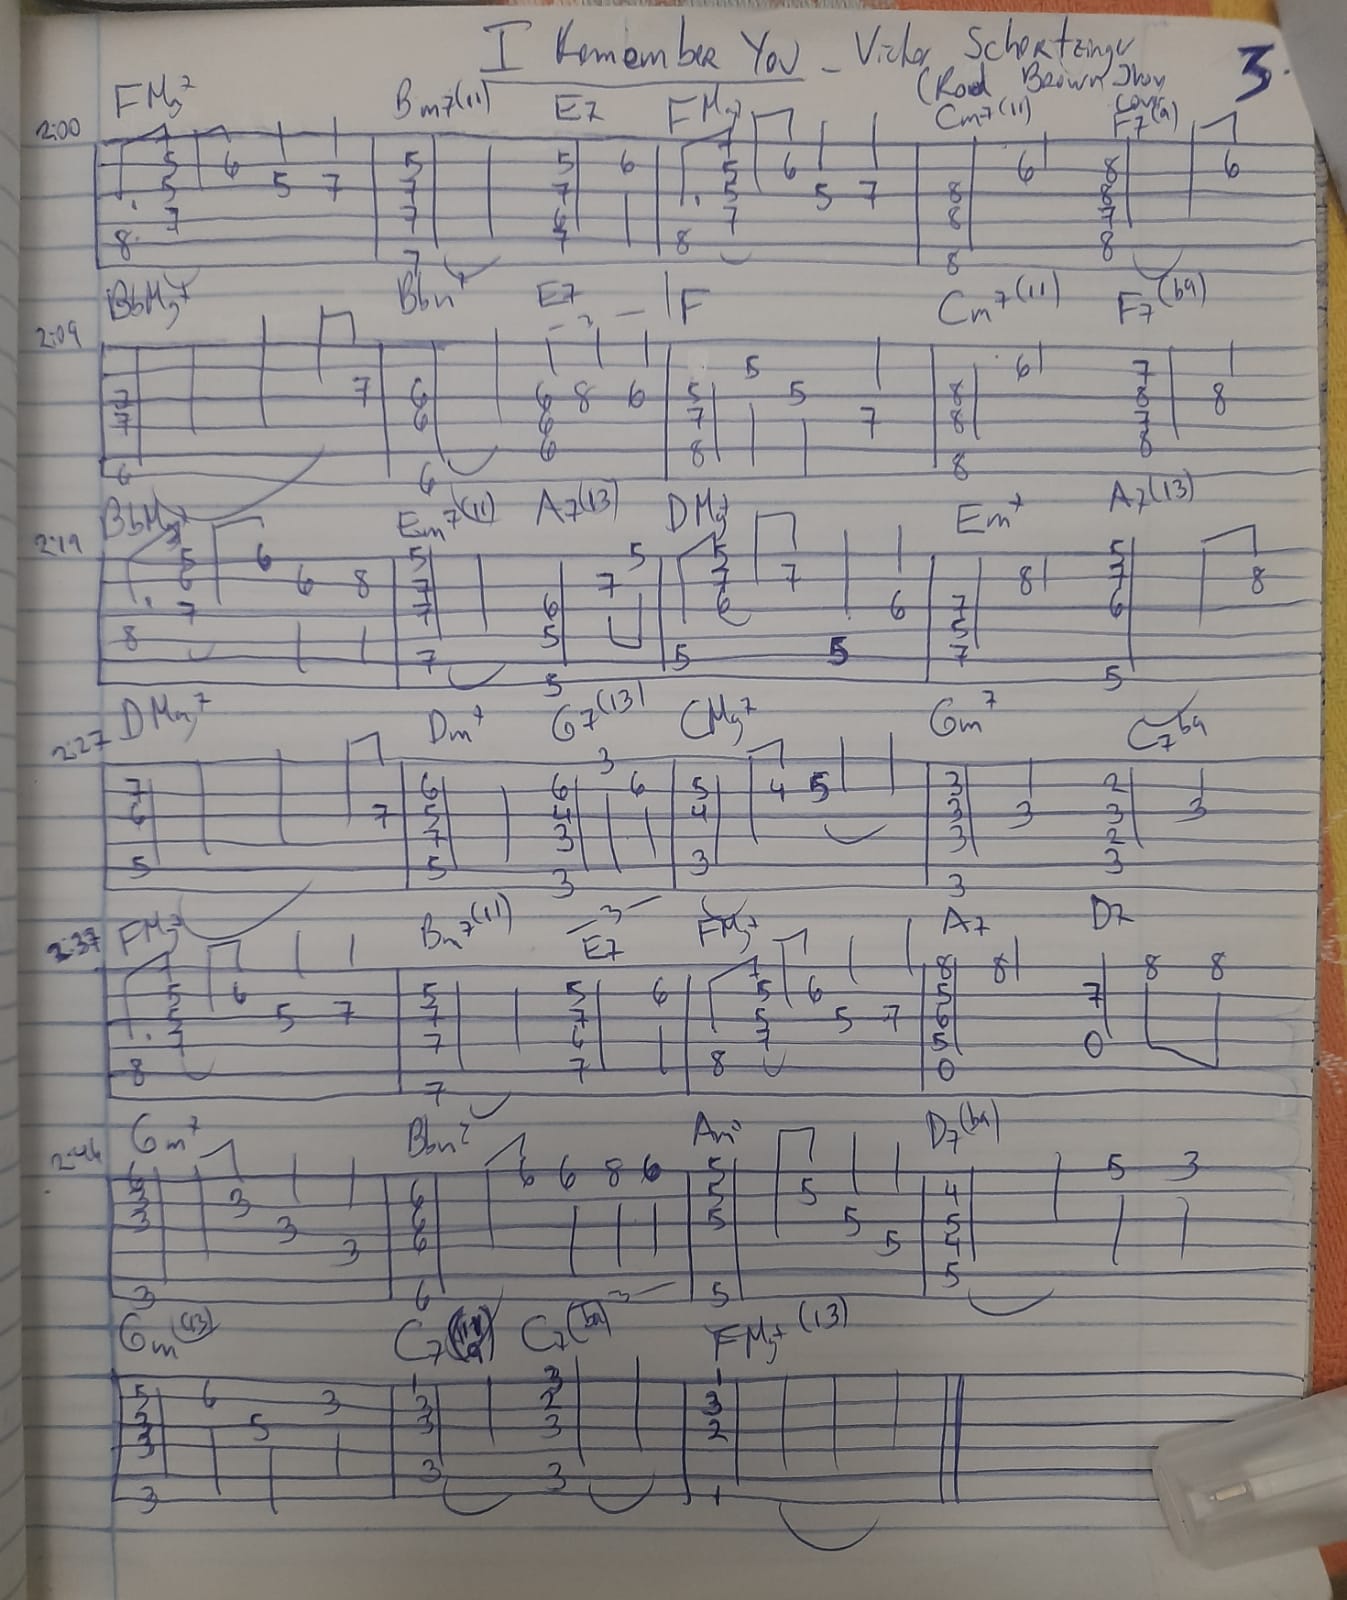 I Remember You - Victor Schertzinger
3.
FMaj7 Bm7(11) E7 FMaj7 Cm7(11) F7(9)
2:00
5 6 5 5 6 5 6 8 6
5 5 7 7 7 5 5 7 8 8
7 7 6 7 8 7
8 7 8 8
7 8
BbMaj7 Bbm7 E7 F Cm7(11) F7(b9)
2:09
3
5 6 7
7 7 6 6 8 6 5 5 8 8 8
7 6 6 7 7 8 7
6 8 8
6 6 8
BbMaj7 Em7(11) A7(13) DMaj7 Em7 A7(13)
2:19
5 6 5 5 5 5
6 6 8 7 7 7 7 8 7 8
7 7 6 6 6 7 6
8 5 5
7 5 5 7
5 5
DMaj7 Dm7 G7(13) CMaj7 Gm7 C7b9
2:27
3
7 6 6 6 5 4 5 3 2
6 7 5 4 4 3 3 3 3
7 3 3 2
5 5 3 3
3 3
FMaj7 Bm7(11) E7 FMaj7 A7 D7
2:37
3
8 8 8 8
5 6 5 5 6 5 6 5 7
5 5 7 7 7 5 5 7 6
7 7 6 7 5 0
8 7 8 0
7
Gm7 Bbm7 Am7 D7(b9)
2:46
6 6 6 8 6 5 5 3
3 3 6 5 5 4
3 3 6 5 5 5
3 6 5 4
5
3 6 5
3
Gm C7 C7(b9) FMaj7(13)
1 3 1
5 6 3 3 2 3
3 5 3 3 2
3
3 3
3 1